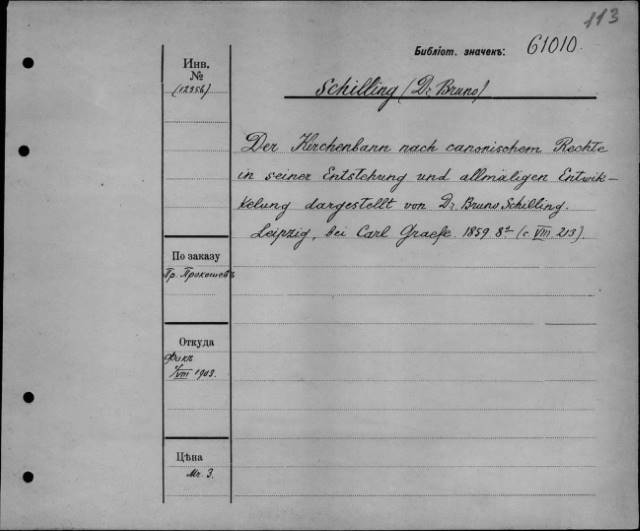 113
Библіот. значекъ: 61010.
Инв.
№
(12356)
Schilling (Dr Bruno)
Der Kirchenbann nach canonischem Rechte
in seiner Entstehung und allmäligen Entwik-
kelung dargestellt von Dr Bruno Schilling.
Leipzig, bei Carl Graefe. 1859 8° (c VIII. 213).
По заказу
Пр. Прокошевъ
Откуда
Фикъ
1/VIII 1903.
Цѣна
Mr. 3.